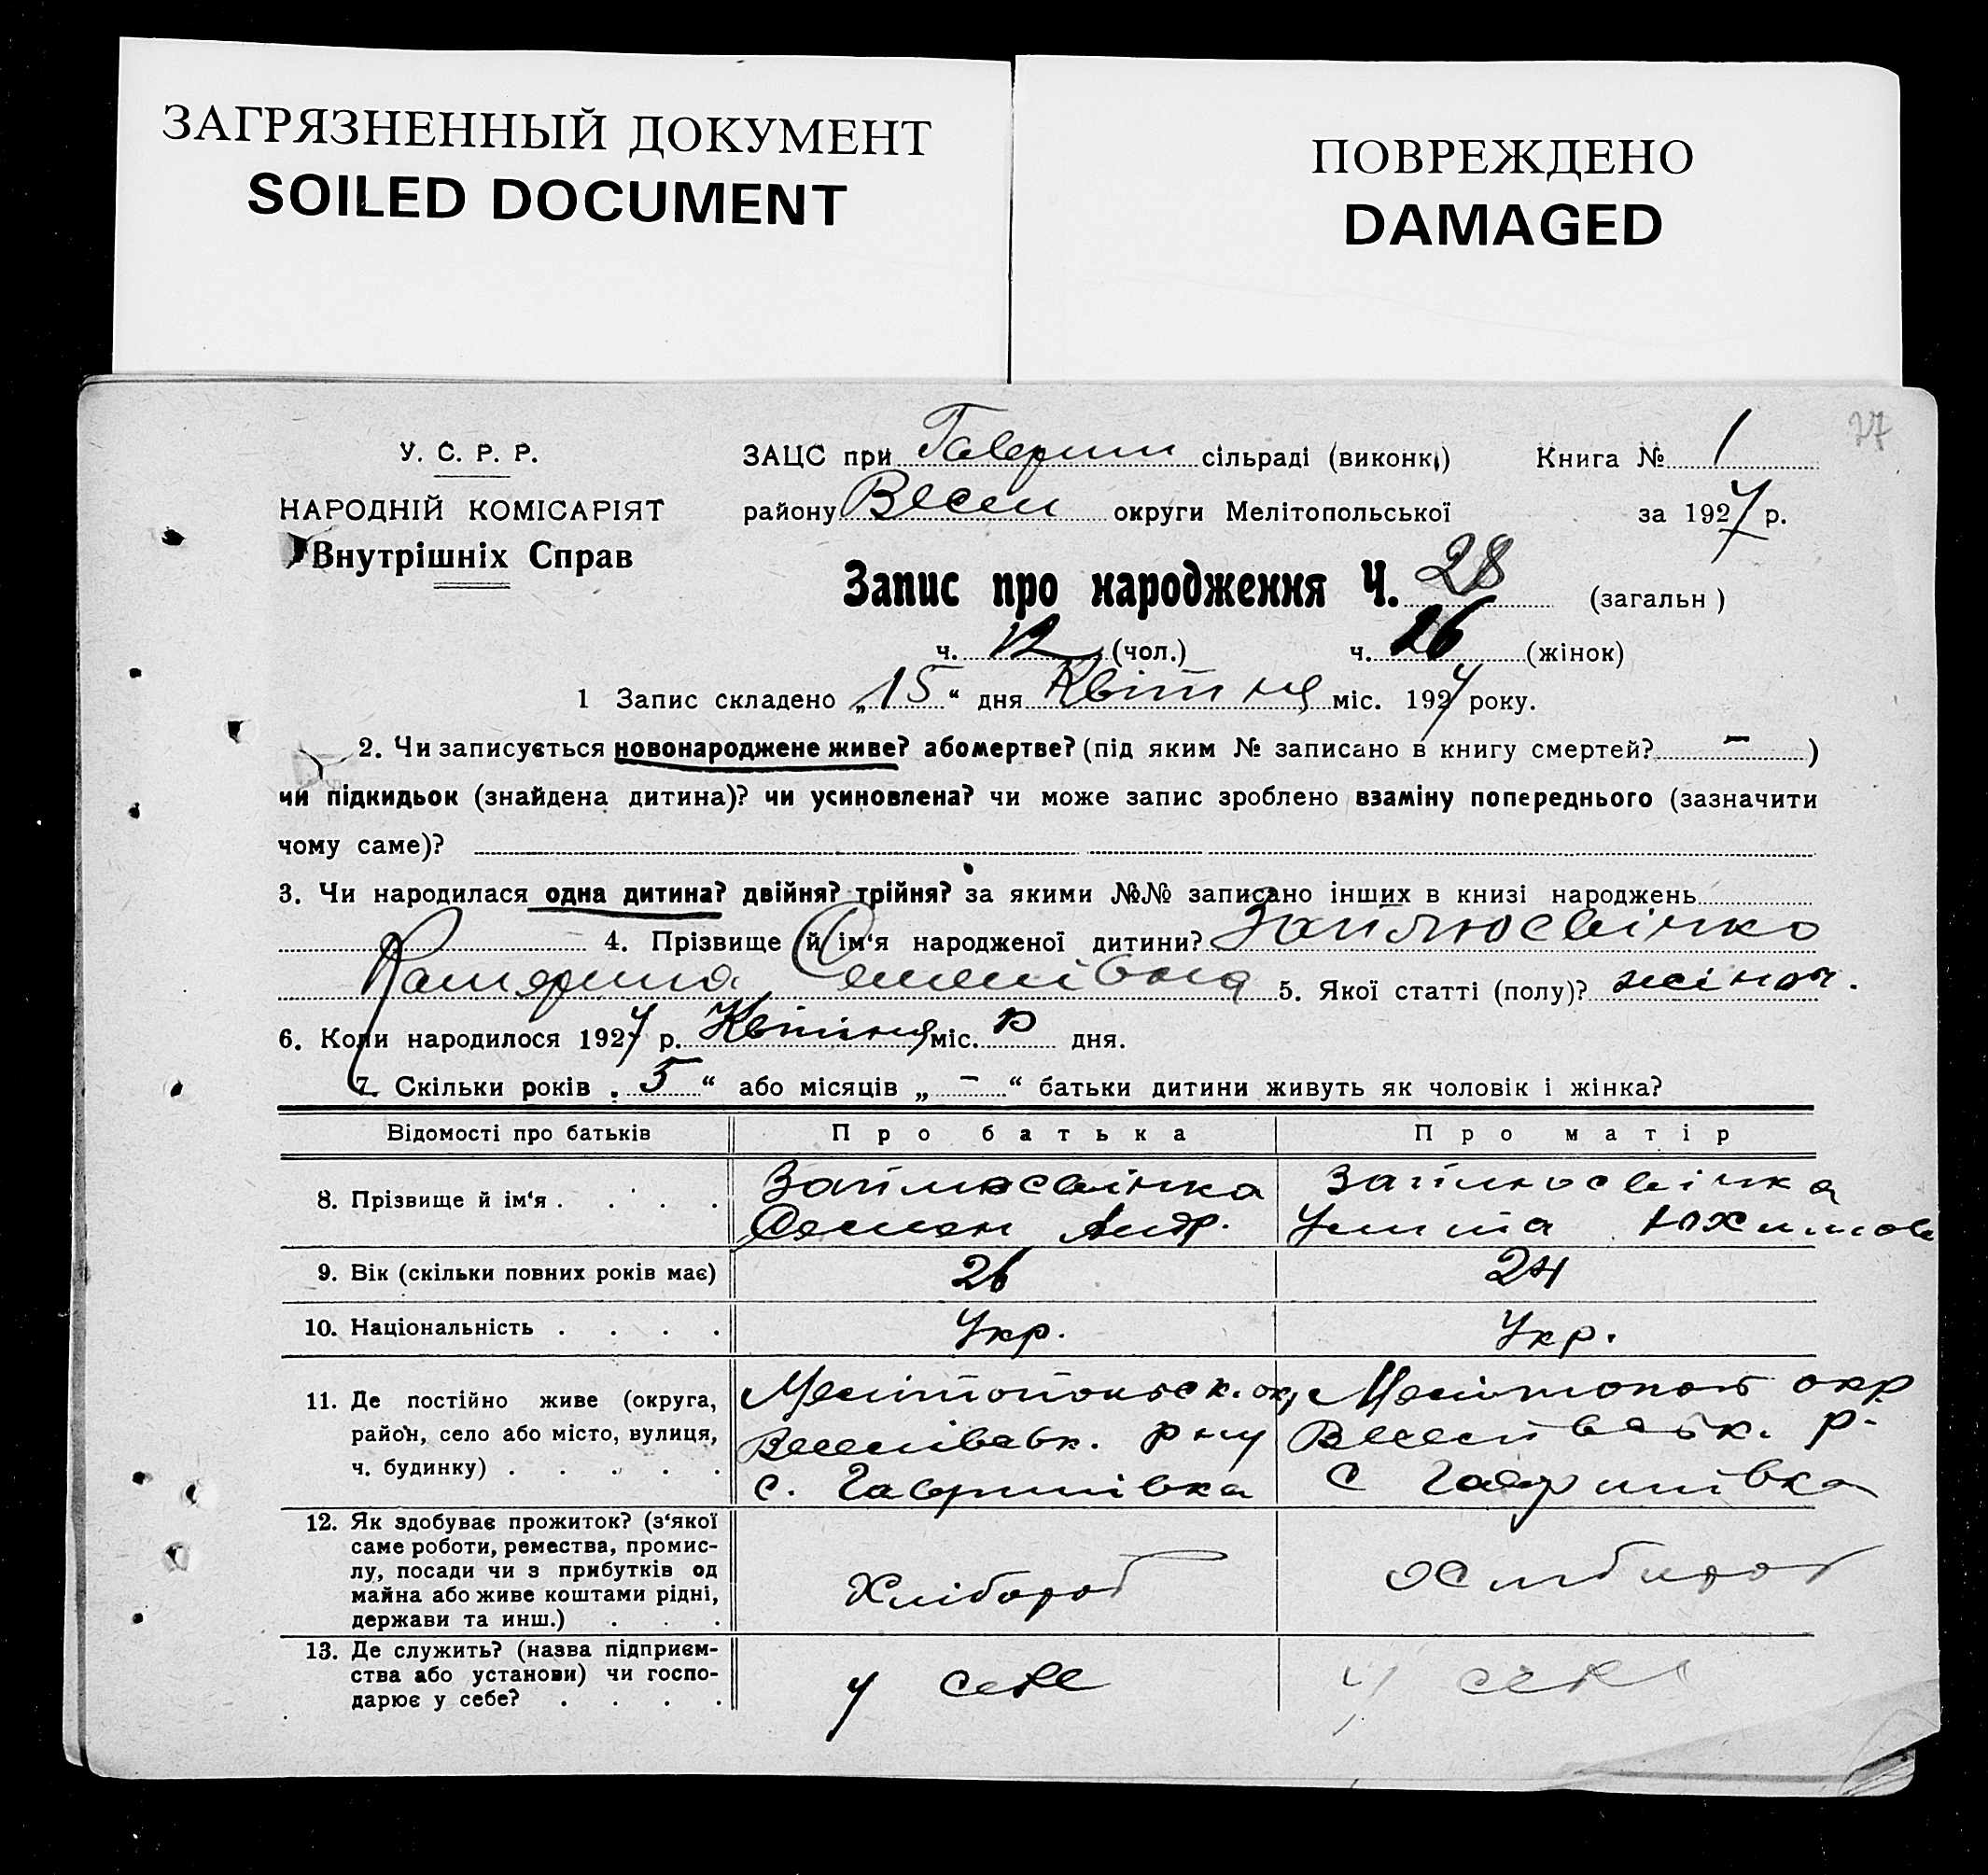 ЗАГРЯЗНЕННЫЙ ДОКУМЕНТ
SOILED DOCUMENT
ПОВРЕЖДЕНО
DAMAGED
27
У. С. Р. Р.
НАРОДНІЙ КОМІСАРІЯТ
Внутрішніх Справ
ЗАЦС при Гаврил сільраді (виконк.) Книга № 1
району Весел округи Мелітопольської за 1927 р.
Запис про народження Ч. 28 (загальн )
ч. 12 (чол.) ч. 16 (жінок)
1 Запис складено „15“ дня Квітня міс. 1927 року.
2. Чи записується новонароджене живе? або мертве? (під яким № записано в книгу смертей? – )
чи підкидьок (знайдена дитина)? чи усиновлена? чи може запис зроблено взаміну попереднього (зазначити
чому саме)?
3. Чи народилася одна дитина? двійня? трійня? за якими №№ записано інших в книзі народжень
4. Прізвище й ім‘я народженої дитини? Заплюсвічко
Катерина Семенівна 5. Якої статті (полу)? жіноч.
6. Коли народилося 1927 р. Квітня міс. дня.
7. Скільки років „5“ або місяців „–“ батьки дитини живуть як чоловік і жінка?
Відомості про батьків Про батька Про матір
8. Прізвище й ім‘я . . . . Заплюсвічка Заплюсвічка
Семен Андр. Юхимов
9. Вік (скільки повних років має) 26 24
10. Національність . . . . Укр. Укр.
11. Де постійно живе (округа, Мелітопольск. окр Мелітопол окр
район, село або місто, вулиця, Веселівськ. р-ну Веселівськ. р-
ч. будинку) . . . . . с. Гаврилівка с Гаврилівка
12. Як здобуває прожиток? (з‘якої
саме роботи, ремества, промис-
лу, посади чи з прибутків од
майна або живе коштами рідні, Хлібороб Хлібороб
держави та инш.) . . .
13. Де служить? (назва підприєм-
ства або установи) чи госпо- у себе у себе
дарює у себе? . . . .